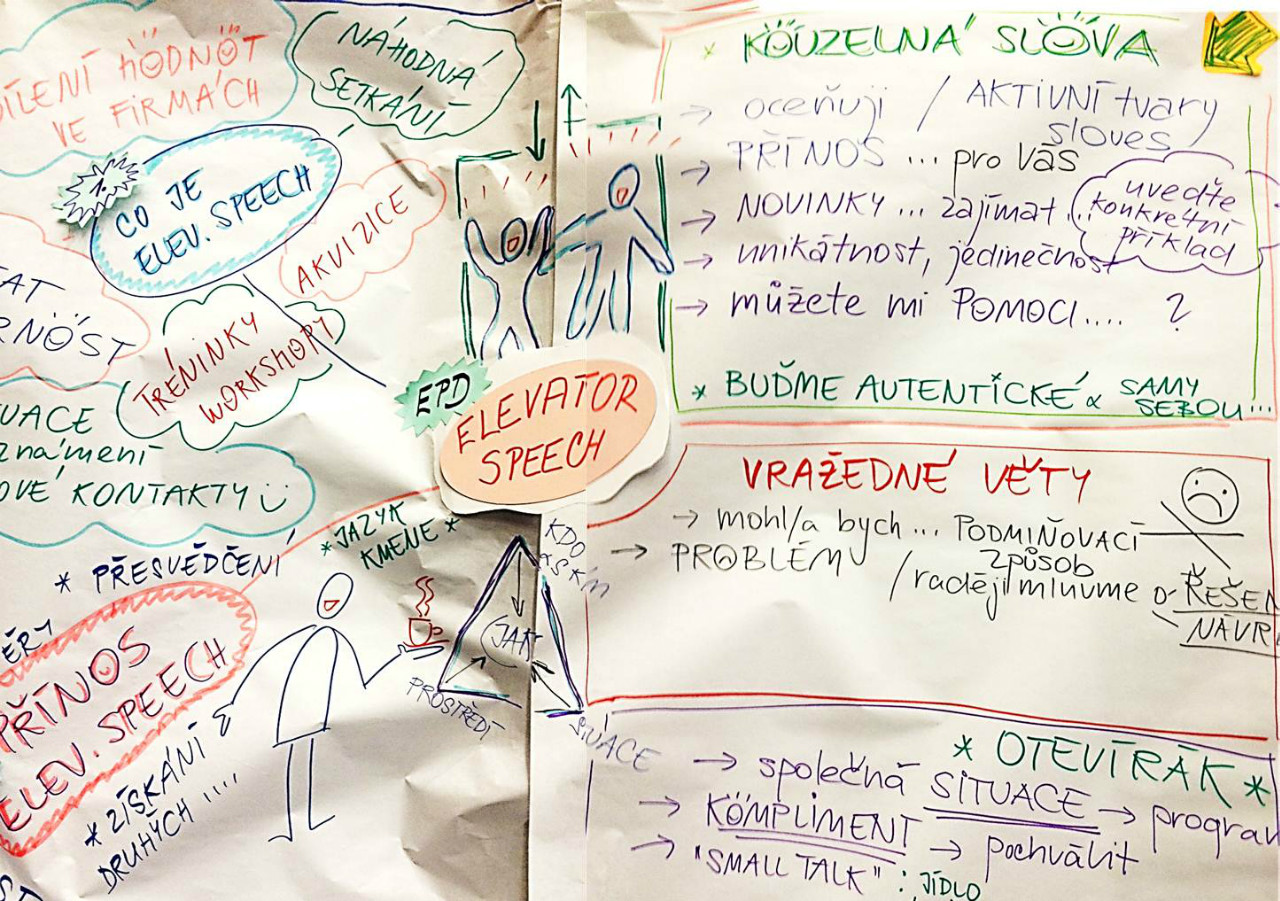 DÍLENÍ HODNOT
VE FIRMÁCH
NÁHODNÁ
SETKÁNÍ
1.
CO JE
ELEV. SPEECH
AKVIZICE
RNOST
TRÉNINKY
WORKSHOPY
UACE
známení
OVÉ KONTAKTY
EPD
ELEVATOR
SPEECH
* KOUZELNÁ SLOVA
→ oceňuji / AKTIVNÍ tvary
sloves
→ PŘÍNOS ... pro Vás
→ NOVINKY ... zajímat ...
uveďte
konkrétní
příklad
→ unikátnost, jedinečnost
→ můžete mi POMOCI.... ?
* BUĎME AUTENTICKÉ α SAMY
SEBOU...
VRAŽEDNÉ VĚTY
→ mohl/a bych ... PODMIŇOVACÍ
ZPŮSOB
→ PROBLÉMU / raději mluvme o - ŘEŠEN
- NÁVR
* JAZYK
KMENE *
KDO
A S KÝM
JAK
PROSTŘEDÍ
SITUACE
* PŘESVĚDČENÍ
ĚRY
PŘÍNOS
ELEV. SPEECH
* ZÍSKÁNÍ
DRUHÝCH ....
* OTEVÍRÁK *
→ společná SITUACE → program
→ KOMPLIMENT → pochválit
→ "SMALL TALK" : JÍDLO